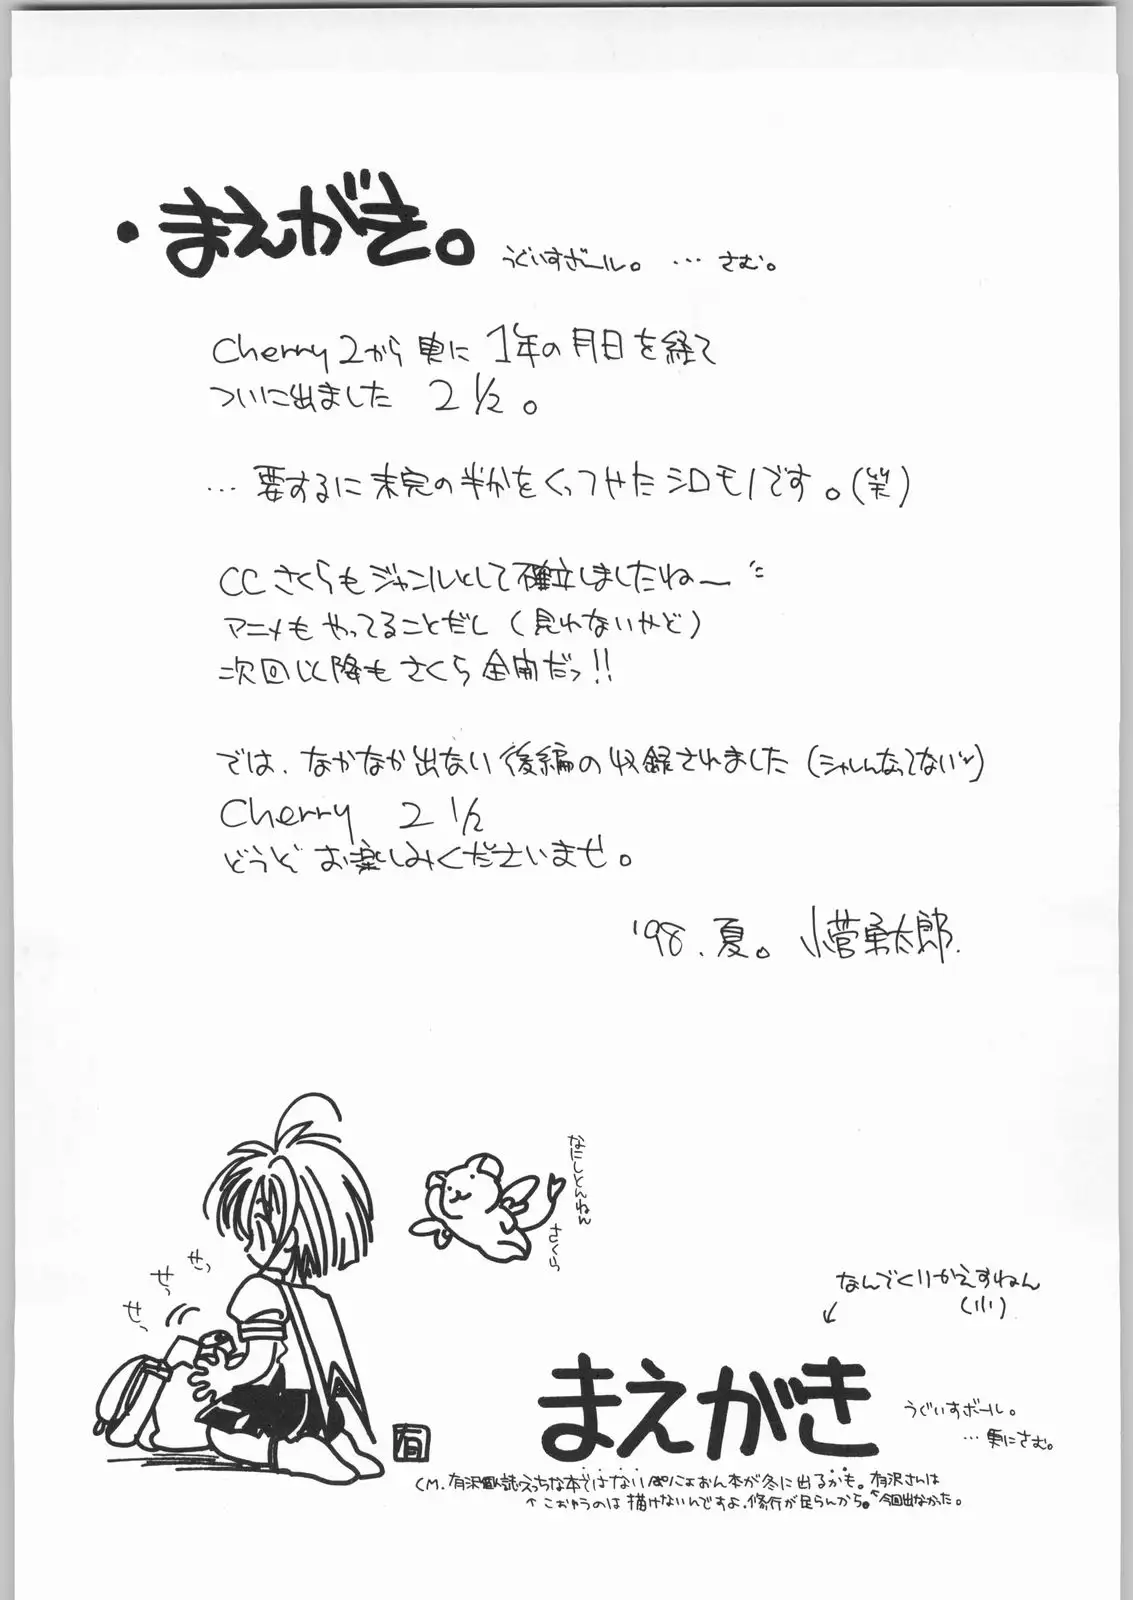 ・まえがき。
うぐいすボール。 … さむ。
Cherry 2から更に1年の月日を経て
ついに出ました 2 1/2。
… 要するに未完の半かをくっつやたシロモノです。(笑)
CCさくらもジャンルとして確立しましたねー
アニメもやってることだし(見れないやど)
次回以降もさくら全開だっ!!
では、なかなか出ない後編の収録されました(シャレんなってない)
Cherry 2 1/2
どうぞお楽しみくださいませ。
'98.夏。 小菅勇太郎.
なにしとんねん
さくら
せっ
せっ
せっ
なんでくりかえすねん
(小)
↙
まえがき
うぐいすボール。
… 更にさむ。
有
CM. 有沢個人誌えっちな本ではないぱにょおん本が冬に出るかも。有沢さんは
↑こおゆうのは描けないんですよ、修行が足らんから。↑今回出なかった。